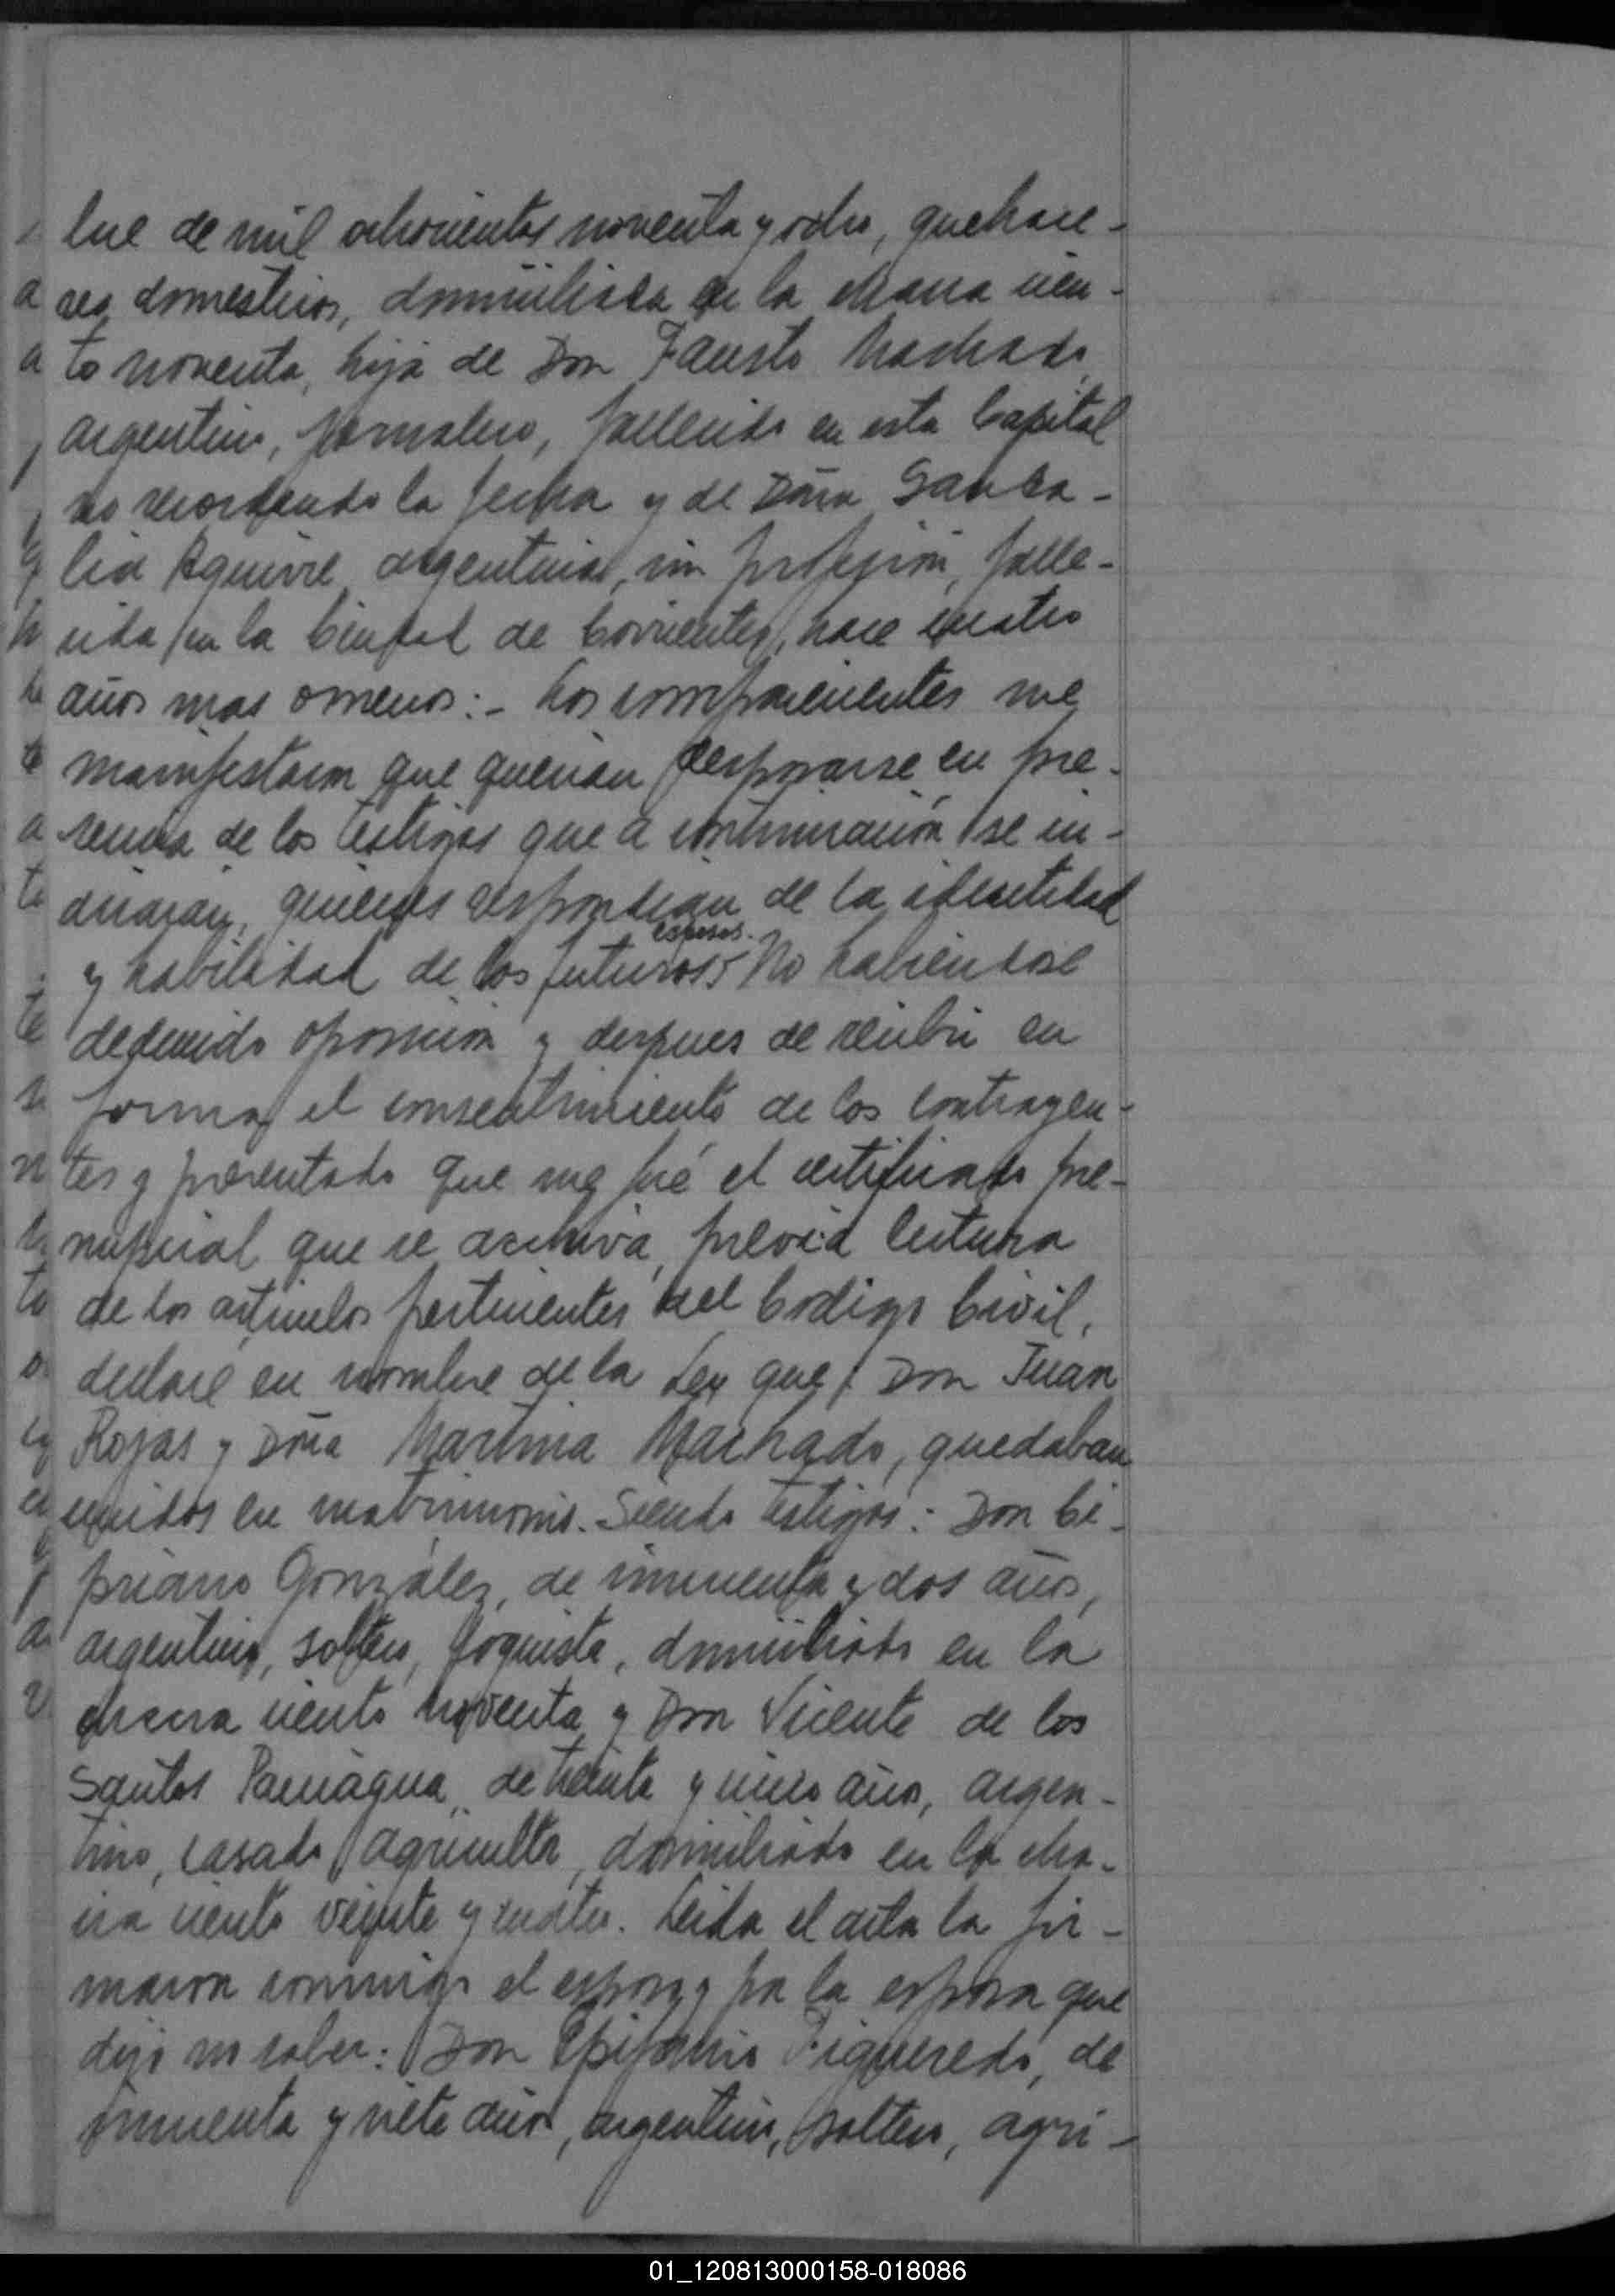 bre de mil ochocientos noventa y ocho, quehace-
res domesticos, domiciliada en la chacra cien-
to noventa, hija de Don Fausto Machado,
argentino, jornalero, fallecido en esta Capital
no recordando la fecha y de Doña Santa-
lia Aguirre, argentina, sin profesión, falle-
cida en la Ciudad de Corrientes, hace cuatro
años mas o menos:- Los comparecientes me
manifestaron que querian desposarse en pre-
sencia de los testigos que a continuación se in-
dicarán, quienes respondian de la identidad
esposos.
y habilidad de los futuros No habiendose
deducido oposición y despues de recibir en
forma el consentimiento de los contrayen-
tes y presentado que me fué el certificado pre-
nupcial que se archiva, previa lectura
de los articulos pertinentes del Codigo Civil,
declaré en nombre de la Ley que: Don Juan
Rojas y Doña Maximia Machado, quedaban
unidos en matrimonio. Siendo testigos: Don Ci-
priano González, de cincuenta y dos años,
argentino, soltero, foguista, domiciliado en la
chacra ciento noventa y Don Vicente de los
Santos Paniagua, de treinta y cinco años, argen-
tino, casado, agricultor, domiciliado en la cha-
cra ciento veinte y cuatro. Leida el acta la fir-
maron conmigo el esposo y por la esposa que
dijo no saber: Don Epifanio Figueredo, de
cincuenta y siete años, argentino, soltero, agri-
01_120813000158-018086